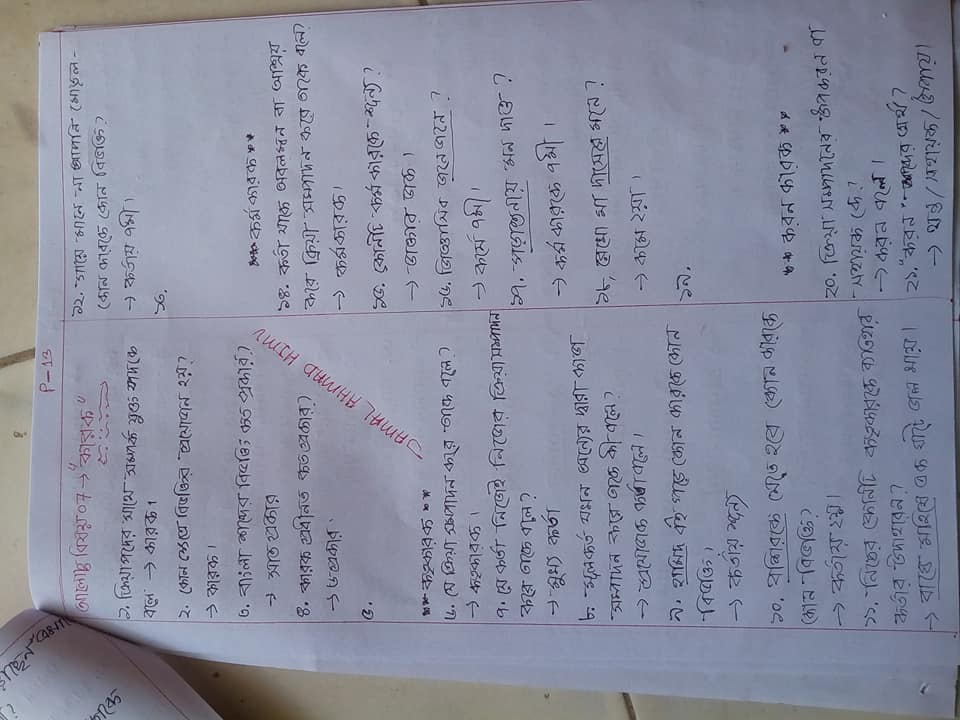 P-13
আলোচ্য বিষয় ০৭ → "কারক"
১. ক্রিয়াপদের সাথে সম্পর্ক যুক্ত পদকে
বলে → কারক।
২. কোন ক্ষেত্রে বিভক্তির প্রয়োজন হয়?
→ কারক।
৩. বাংলা শব্দের বিভক্তি কত প্রকার?
→ সাত প্রকার
৪. কারক প্রধানত কত প্রকার?
→ ৬ প্রকার
৫.
JAMAL AHMAD HIMU
** কতৃকারক **
৬. যে ক্রিয়া সম্পাদন করে তাকে বলে?
→ কতৃকারক।
৭. যে কর্তা নিজেই নিজের ক্রিয়া সম্পাদন
করে তাকে বলে?
→ মুখ্য কর্তা
৮. মূলকর্তা যখন অন্যের দ্বারা কাজ
সম্পাদন করে তাকে কী বলে?
→ প্রযোজক কর্তা বলে।
৯. হামিদ বই পড়ে কোন কারকে কোন
বিভক্তি।
→ কর্তায় শূন্য
১০. বশিরকে যেতে হবে কোন কারকে
কোন বিভক্তি?
→ কর্তায় ২য়।
১১. নিচের কোনটি কতৃকারকে ব্যতিহার
কর্তার উদাহরন?
→ বাঘে মহিষে এক ঘাটে জল খায়।
১২. গায়ে মানে না আপনি মোড়ল -
কোন কারকে কোন বিভক্তি?
→ কর্তায় ৭মী।
১৩.
*** কর্ম কারক **
১৪. কর্তা যাকে অবলম্বন বা আশ্রয়
করে ক্রিয়া সম্পাদন করে তাকে বলে?
→ কর্মকারক।
১৫. কোনটি কর্ম কারকে শূন্য?
→ ডাক্তার ডাক।
১৬. জিজ্ঞাসিব জনে জনে?
→ কর্মে ৭মী।
১৭. পড়াশুনায় মন দাও?
→ কর্ম কারকে ৭মী।
১৮. রেখো মা দাসেরে মনে?
→ কমে ২য়া।
১৯.
** করন কারক **
২০. ক্রিয়া সম্পাদনের উপকরন বা
সহায়ক কে?
→ করন বলে।
২১. "করন" শব্দের অর্থ?
→ যন্ত্র / সহায়ক / উপায়।